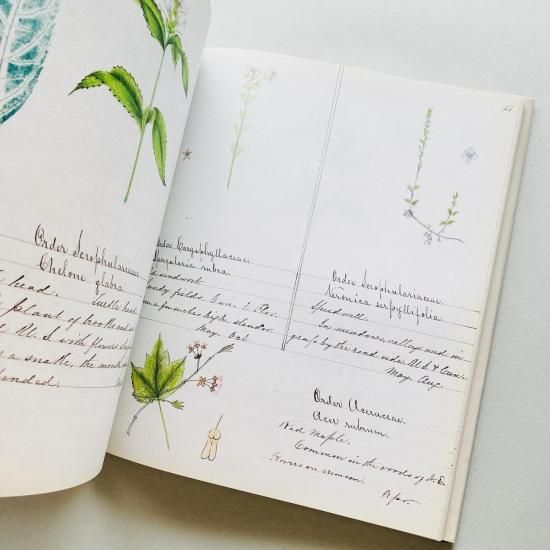 Order Scrophulariaceae
Chelone glabra.
head. Turtle head
plant of brooks and
U. S. with flowers
a snake, the mouth
Order Caryophyllaceae.
rubra.
sandwort
sandy fields. Me. to Flor.
a few inches high. slender
May. Oct.
55
Order Scrophulariaceae.
Veronica serpyllifolia.
Speedwell.
In meadows, valleys and in
grass by the road side. U.S. & Can.
May. Aug.
Order Aceraceae.
Acer rubrum.
Red Maple.
Common in the woods of N. E.
Flowers are crimson.
Apr.